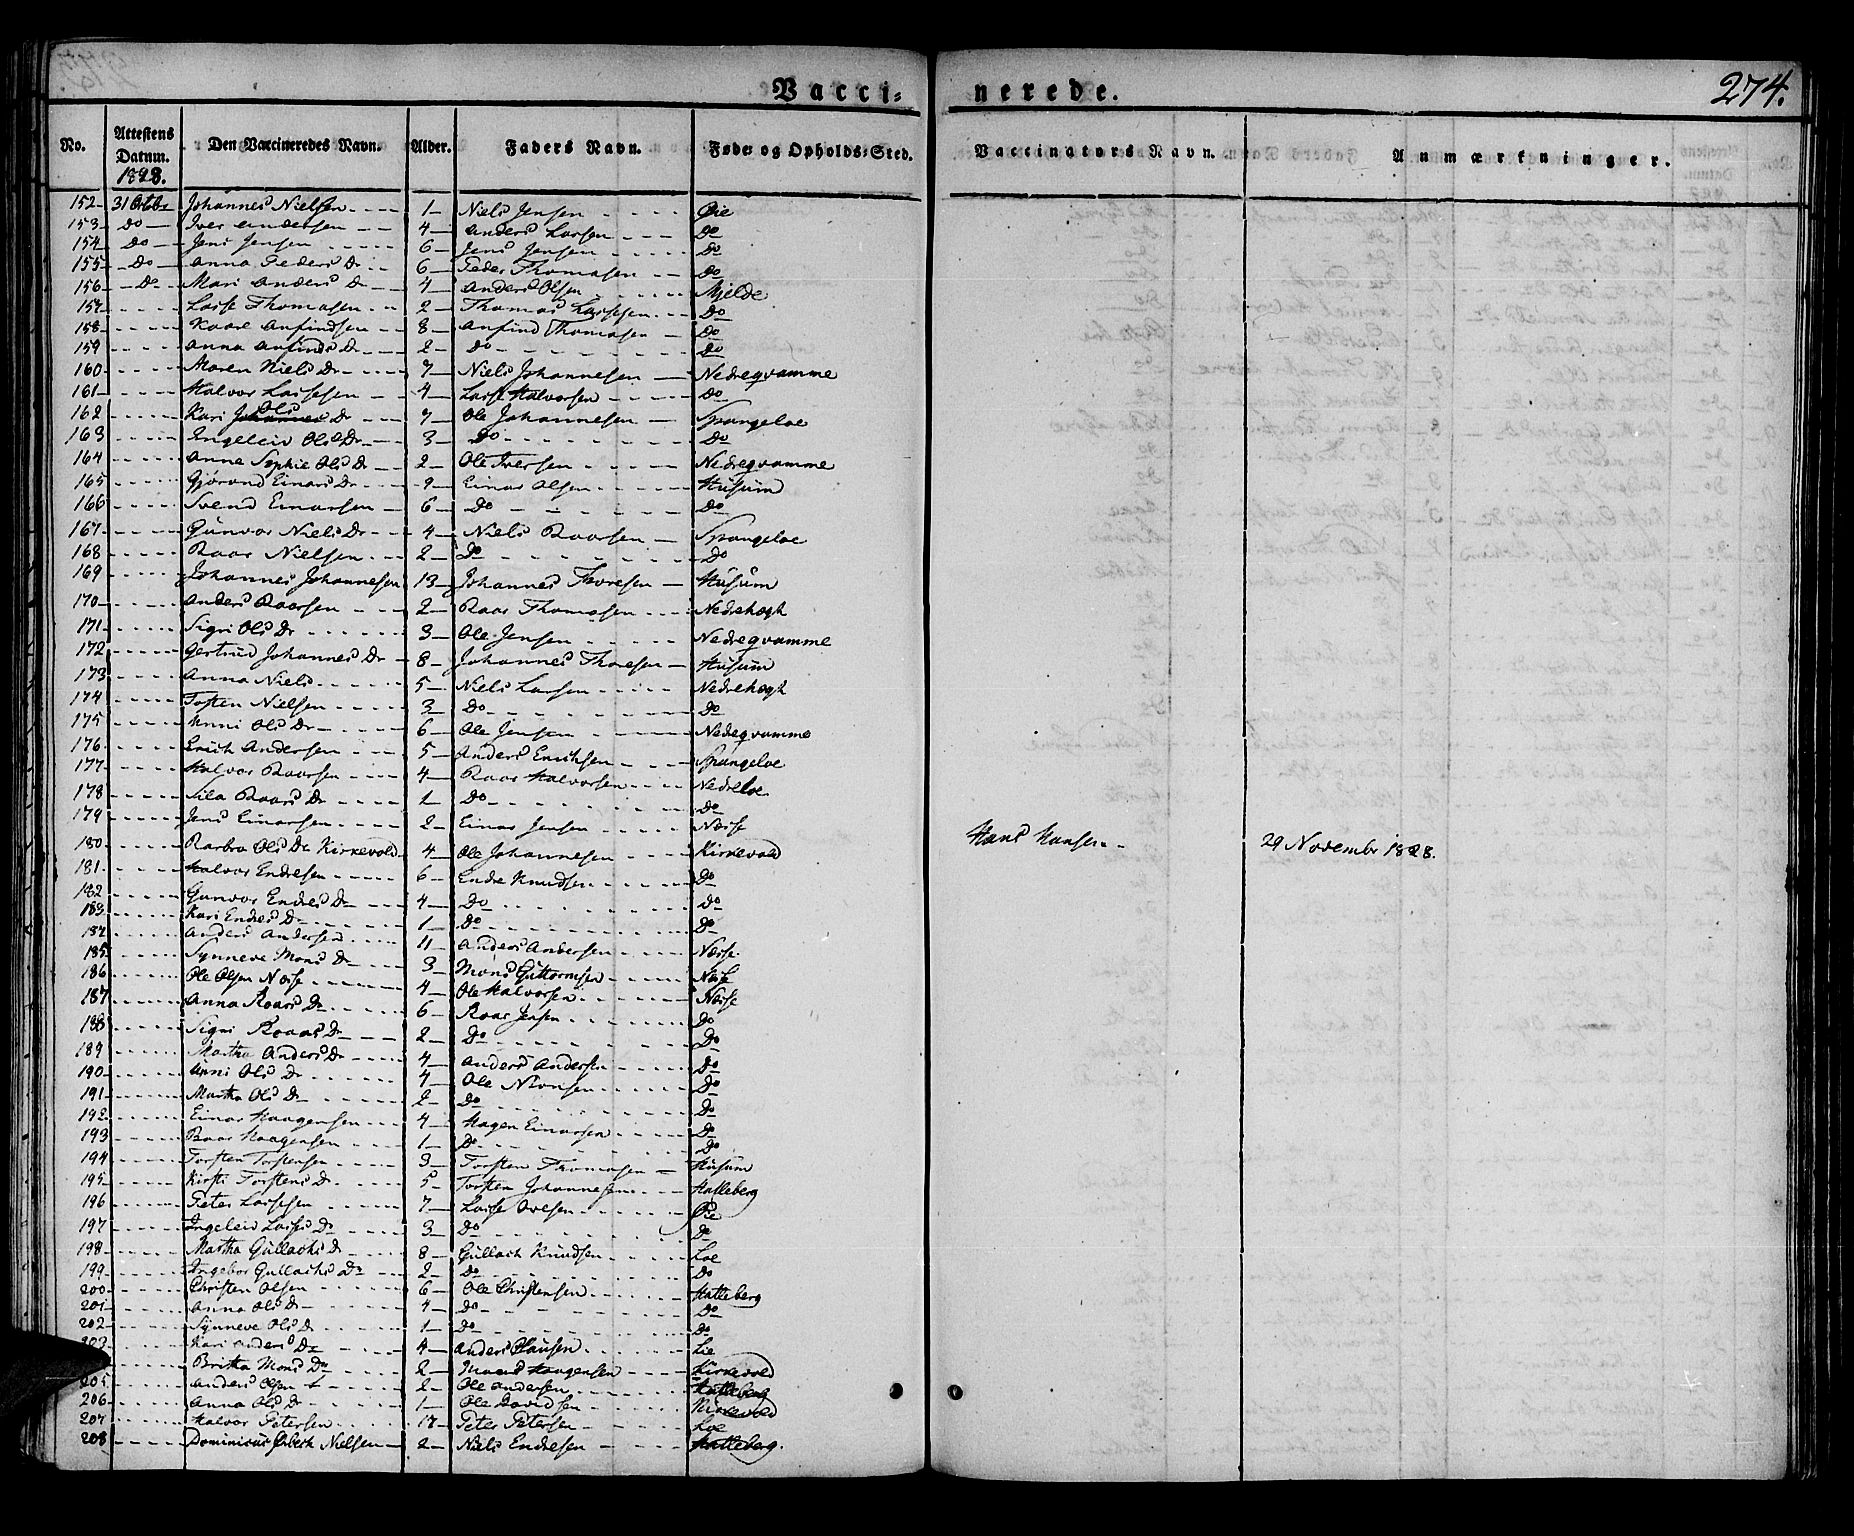 274.
Vacci= nerede.
No. Attestens Datum. 1828. Den Vaccineredes Navn. Alder. Faders Navn. Føde= og Opholds=Sted. Vaccinators Navn. Anmærkninger.
152 31 Octobr Johannes Nielsen 1 Niels Jensen Øie
153 Do Iver Andersen 4 Anders Larsen Do
154 Do Jens Jensen 6 Jens Jensen Do
155 Do Anna Peders Dr 6 Peder Thomasen Do
156 Do Mari Anders Dr 4 Anders Olsen Mjelde
157 Lasse Thomasen 2 Thomas Lassesen Do
158 Kaare Anfindsen 8 Anfind Thomasen Do
159 Anna Anfinds Dr 2 Do Do
160 Maren Niels Dr 7 Niels Johannesen Nedreqvamme
161 Halvor Lassesen 4 Lasse Halvorsen Do
162 Kari Ols Dr 7 Ole Johannesen Spangeloe
163 Engeleiv Ols Dr 3 Do Do
164 Anne Sophie Ols Dr 2 Ole Iversen Nedreqvamme
165 Gjørond Einars Dr 9 Einar Olsen Husum
166 Svend Einarsen 6 Do Do
167 Gunvor Niels Dr 4 Niels Roarsen Spangeloe
168 Roar Nielsen 2 Do Do
169 Johannes Johannesen 13 Johannes Thoresen Husum
170 Anders Roarsen 2 Roar Thomasen Nedrehægt
171 Sigri Ols Dr 3 Ole Jensen Nedreqvamme
172 Gertrud Johannes Dr 8 Johannes Thoresen Husum
173 Anna Niels 5 Niels Larsen Nedrehægt
174 Tosten Nielsen 3 Do Do
175 Unni Ols Dr 6 Ole Jensen Nedreqvamme
176 Erich Andersen 5 Anders Erichsen Spangeloe
177 Halvor Roarsen 4 Roar Halvorsen Nedreloe
178 Sila Roars Dr 1 Do Do
179 Jens Einarsen 2 Einar Jensen Næsse
180 Barbro Ols Dr Kirkevold 4 Ole Johannesen Kirkevold Hans Hansen 29 Novembr 1828.
181 Halvor Endresen 6 Endre Knudsen Do
182 Gunvor Endres Dr 4 Do Do
183 Kari Endres Dr 1 Do Do
184 Anders Andersen 11 Anders Andersen Næsse
185 Synneve Mons Dr 3 Mons Guttormsen Næsse
186 Ole Olsen Næsse 4 Ole Halvorsen Næsse
187 Anna Roars Dr 6 Roar Jensen Do
188 Sigri Roars Dr 2 Do Do
189 Martha Anders Dr 4 Anders Andersen Do
190 Unni Ols Dr 4 Ole Monsen Do
191 Martha Ols Dr 2 Do Do
192 Einar Haagensen 4 Hagen Einarsen Do
193 Roar Haagensen 1 Do Do
194 Torsten Torstensen 3 Torsten Thomasen Husum
195 Kirsti Torstens Dr 5 Torsten Johannesen Hatleberg
196 Peter Lassesen 7 Lasse Ivesen Øie
197 Ingeleiv Lasses Dr 3 Do Do
198 Martha Gullachs Dr 8 Gullach Knudsen Loe
199 Ingebor Gullachs Dr 2 Do Do
200 Christen Olsen 6 Ole Christensen Hatleberg
201 Anna Ols Dr 4 Do Do
202 Synneve Ols Dr 1 Do Do
203 Kari Anders Dr 4 Anders Hansen Lie
Britha Mons Dr 2 Mons Haagensen Kirkevold
205 Anders Olsen 2 Ole Andersen Hatleberg
206 Anna Ols Dr 1 Ole Davidsen Kirkevold
207 Halvor Petersen 17 Peter Petersen Loe
208 Dominicus Nielsen 2 Niels Endresen Hatleberg.